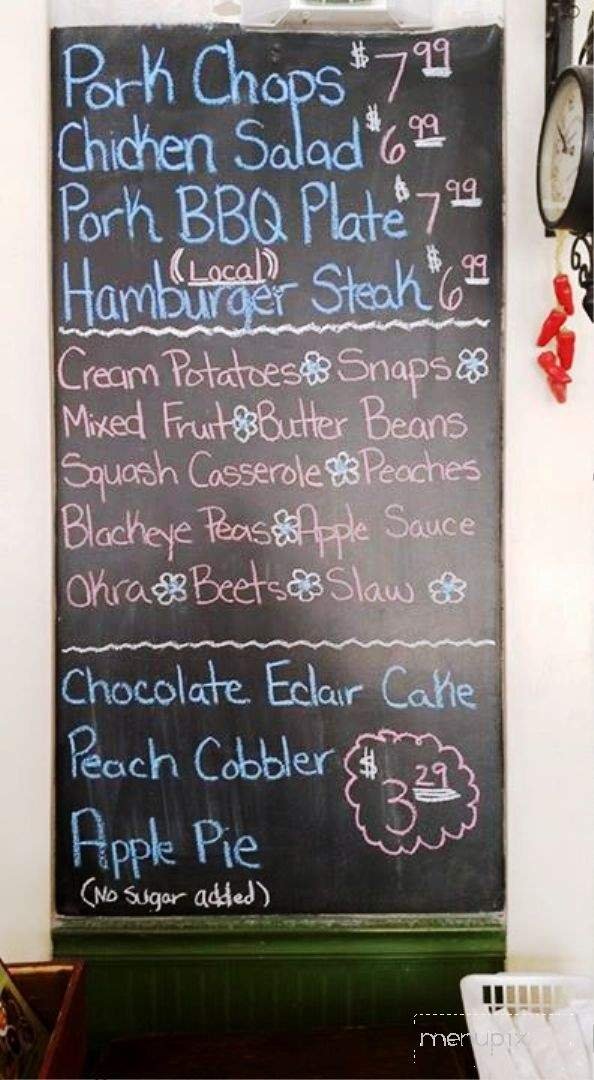 Pork Chops $7.99
Chicken Salad $6.99
Pork BBQ Plate $7.99
(Local)
Hamburger Steak $6.99
Cream Potatoes Snaps
Mixed Fruit Butter Beans
Squash Casserole Peaches
Blackeye Peas Apple Sauce
Okra Beets Slaw
Chocolate Eclair Cake
Peach Cobbler $3.29
Apple Pie
(No Sugar added)
menupix